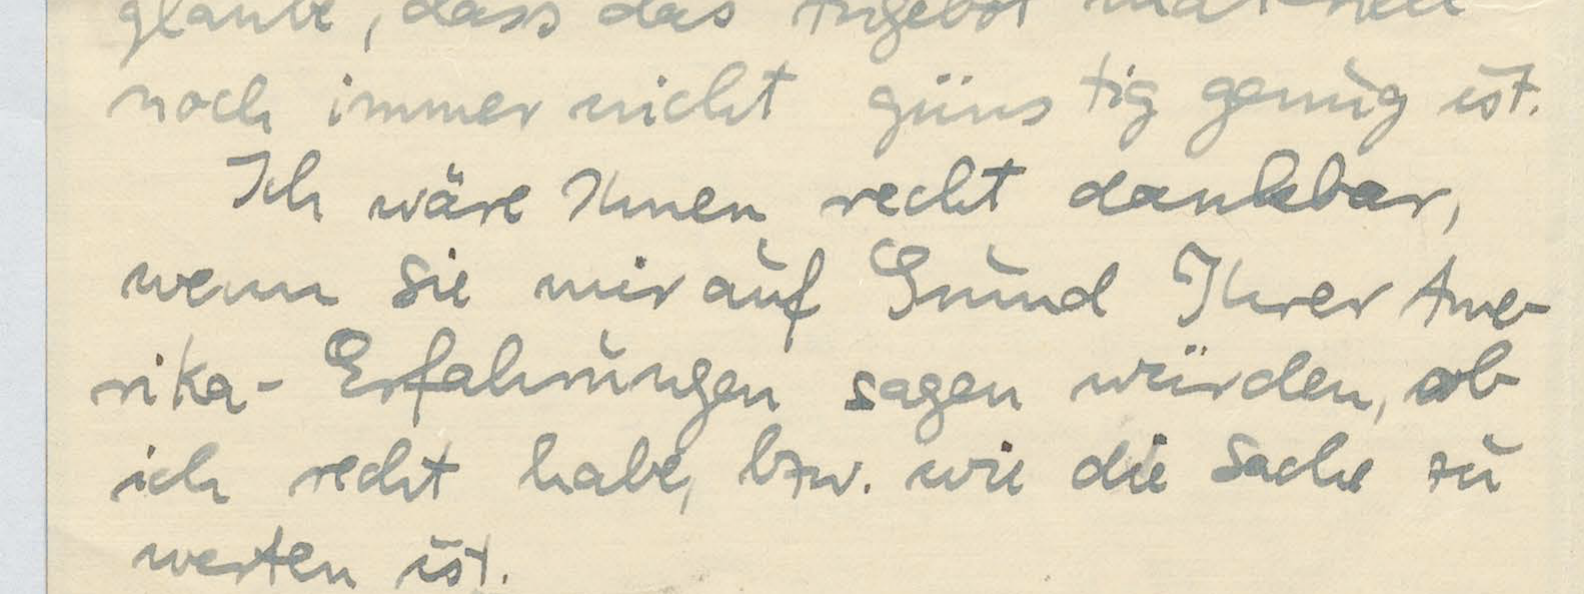 glaube, dass das Angebot materiell
noch immer nicht günstig genug ist.
Ich wäre Ihnen recht dankbar,
wenn Sie mir auf Grund Ihrer Ame-
rika-Erfahrungen sagen würden, ob
ich recht habe, bzw. wie die Sache zu
werten ist.